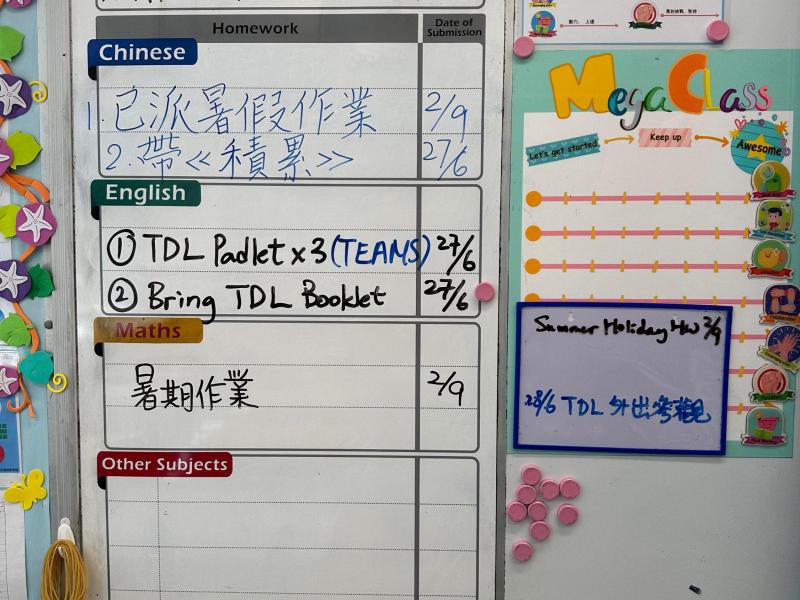 Homework
Date of Submission
Chinese
1. 已派暑假作業 2/9
2. 帶《積累》 27/6
English
① TDL Padlet x 3 (TEAMS) 27/6
② Bring TDL Booklet 27/6
Maths
暑期作業 2/9
Other Subjects
Mega Class
Let's get started
Keep up
Awesome
Summer Holiday HW 2/9
28/6 TDL 外出參觀